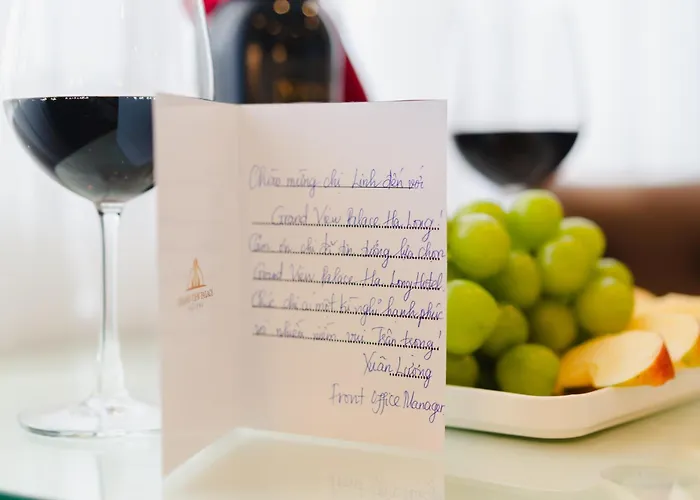 Chào mừng chị Linh đến với
Grand View Palace Ha Long!
Cảm ơn chị đã tin tưởng lựa chọn
Grand View Palace Ha Long Hotel
Chúc chị có một kì nghỉ hạnh phúc
và nhiều niềm vui. Trân trọng!
Xuân Lương
Front Office Manager
GRAND VIEW PALACE